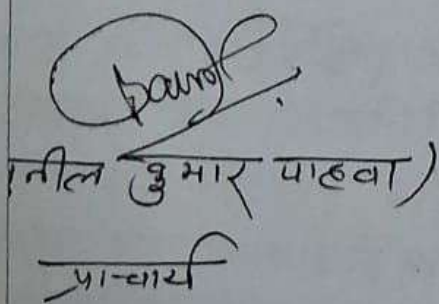 नील कुमार पाहवा)
प्राचार्य